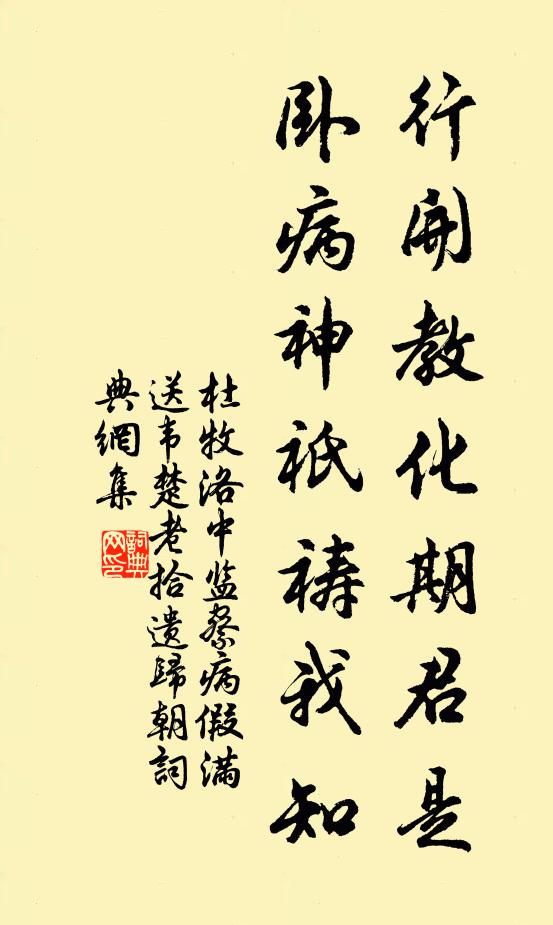 行開教化期君是
卧病神祇祷我知
杜牧洛中监察病假滿
送韦楚老拾遗歸朝詞
典網集
詞典
网印